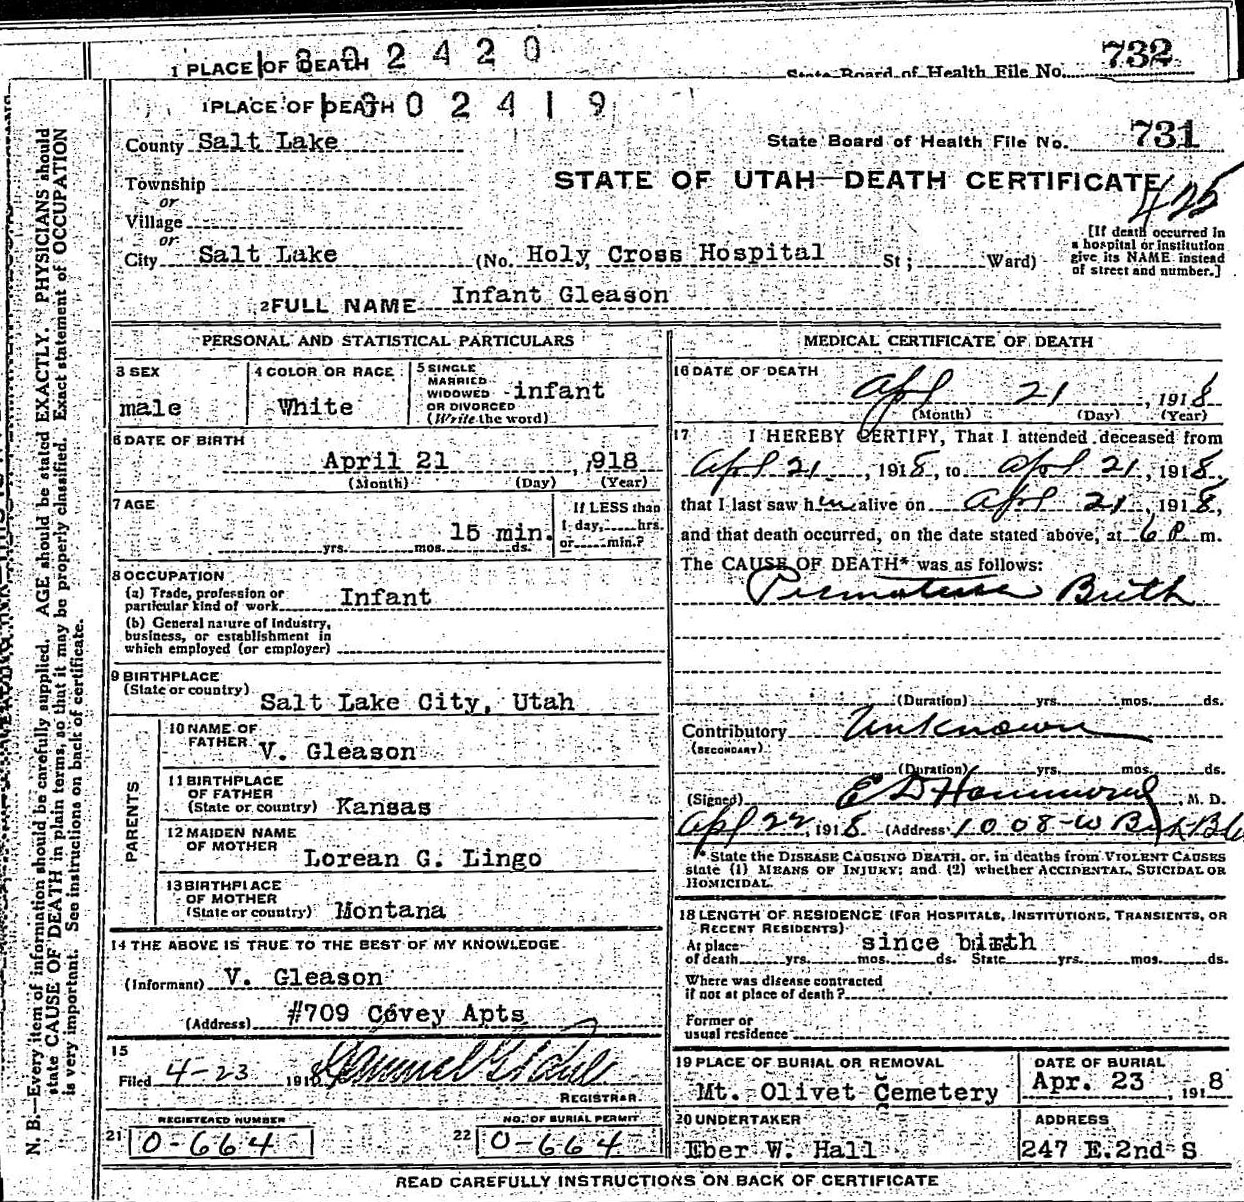 1802420
732
1 PLACE OF DEATH
State Board of Health File No.
1 PLACE OF DEATH 1802419
County Salt Lake
State Board of Health File No. 731
Township
STATE OF UTAH—DEATH CERTIFICATE
or
425
Village
or
[If death occurred in
a hospital or institution
give its NAME instead
of street and number.]
City Salt Lake (No. Holy Cross Hospital St ; Ward)
2 FULL NAME Infant Gleason
PERSONAL AND STATISTICAL PARTICULARS
3 SEX
male
4 COLOR OR RACE
White
5 SINGLE
MARRIED
WIDOWED infant
OR DIVORCED
(Write the word)
6 DATE OF BIRTH
April 21, 1918
(Month) (Day) (Year)
7 AGE
15 min.
yrs. mos. ds.
If LESS than
1 day, hrs.
or min.?
8 OCCUPATION
(a) Trade, profession or
particular kind of work Infant
(b) General nature of Industry,
business, or establishment in
which employed (or employer)
9 BIRTHPLACE
(State or country) Salt Lake City, Utah
PARENTS
10 NAME OF
FATHER V. Gleason
11 BIRTHPLACE
OF FATHER
(State or country) Kansas
12 MAIDEN NAME
OF MOTHER
Lorean G. Lingo
13 BIRTHPLACE
OF MOTHER
(State or country) Montana
14 THE ABOVE IS TRUE TO THE BEST OF MY KNOWLEDGE
(Informant) V. Gleason
(Address) #709 Covey Apts
15
Filed 4-23 1918
REGISTRAR
REGISTERED NUMBER
21 0-664
NO. OF BURIAL PERMIT
22 0-664
MEDICAL CERTIFICATE OF DEATH
16 DATE OF DEATH
Apl 21, 1918
(Month) (Day) (Year)
17 I HEREBY CERTIFY, That I attended deceased from
Apl 21, 1918, to Apl 21, 1918,
that I last saw him alive on Apl 21, 1918,
and that death occurred, on the date stated above, at 6 P m.
The CAUSE OF DEATH* was as follows:
Premature Birth
(Duration) yrs. mos. ds.
Contributory Unknown
(SECONDARY)
(Duration) yrs. mos. ds.
(Signed) E D Hammond, M. D.
Apl 22, 1918 (Address) 1008-W
* State the DISEASE CAUSING DEATH, or, in deaths from VIOLENT CAUSES
state (1) MEANS OF INJURY; and (2) whether ACCIDENTAL, SUICIDAL OR
HOMICIDAL.
18 LENGTH OF RESIDENCE (FOR HOSPITALS, INSTITUTIONS, TRANSIENTS, OR
RECENT RESIDENTS)
At place since birth
of death yrs. mos. ds. State yrs. mos. ds.
Where was disease contracted
if not at place of death?
Former or
usual residence
19 PLACE OF BURIAL OR REMOVAL
Mt. Olivet Cemetery
DATE OF BURIAL
Apr. 23, 1918
20 UNDERTAKER
Eber W. Hall
ADDRESS
247 E.2nd S
READ CAREFULLY INSTRUCTIONS ON BACK OF CERTIFICATE
N. B.—Every item of information should be carefully supplied. AGE should be stated EXACTLY. PHYSICIANS should
state CAUSE OF DEATH in plain terms, so that it may be properly classified. Exact statement of OCCUPATION
is very important. See instructions on back of certificate.